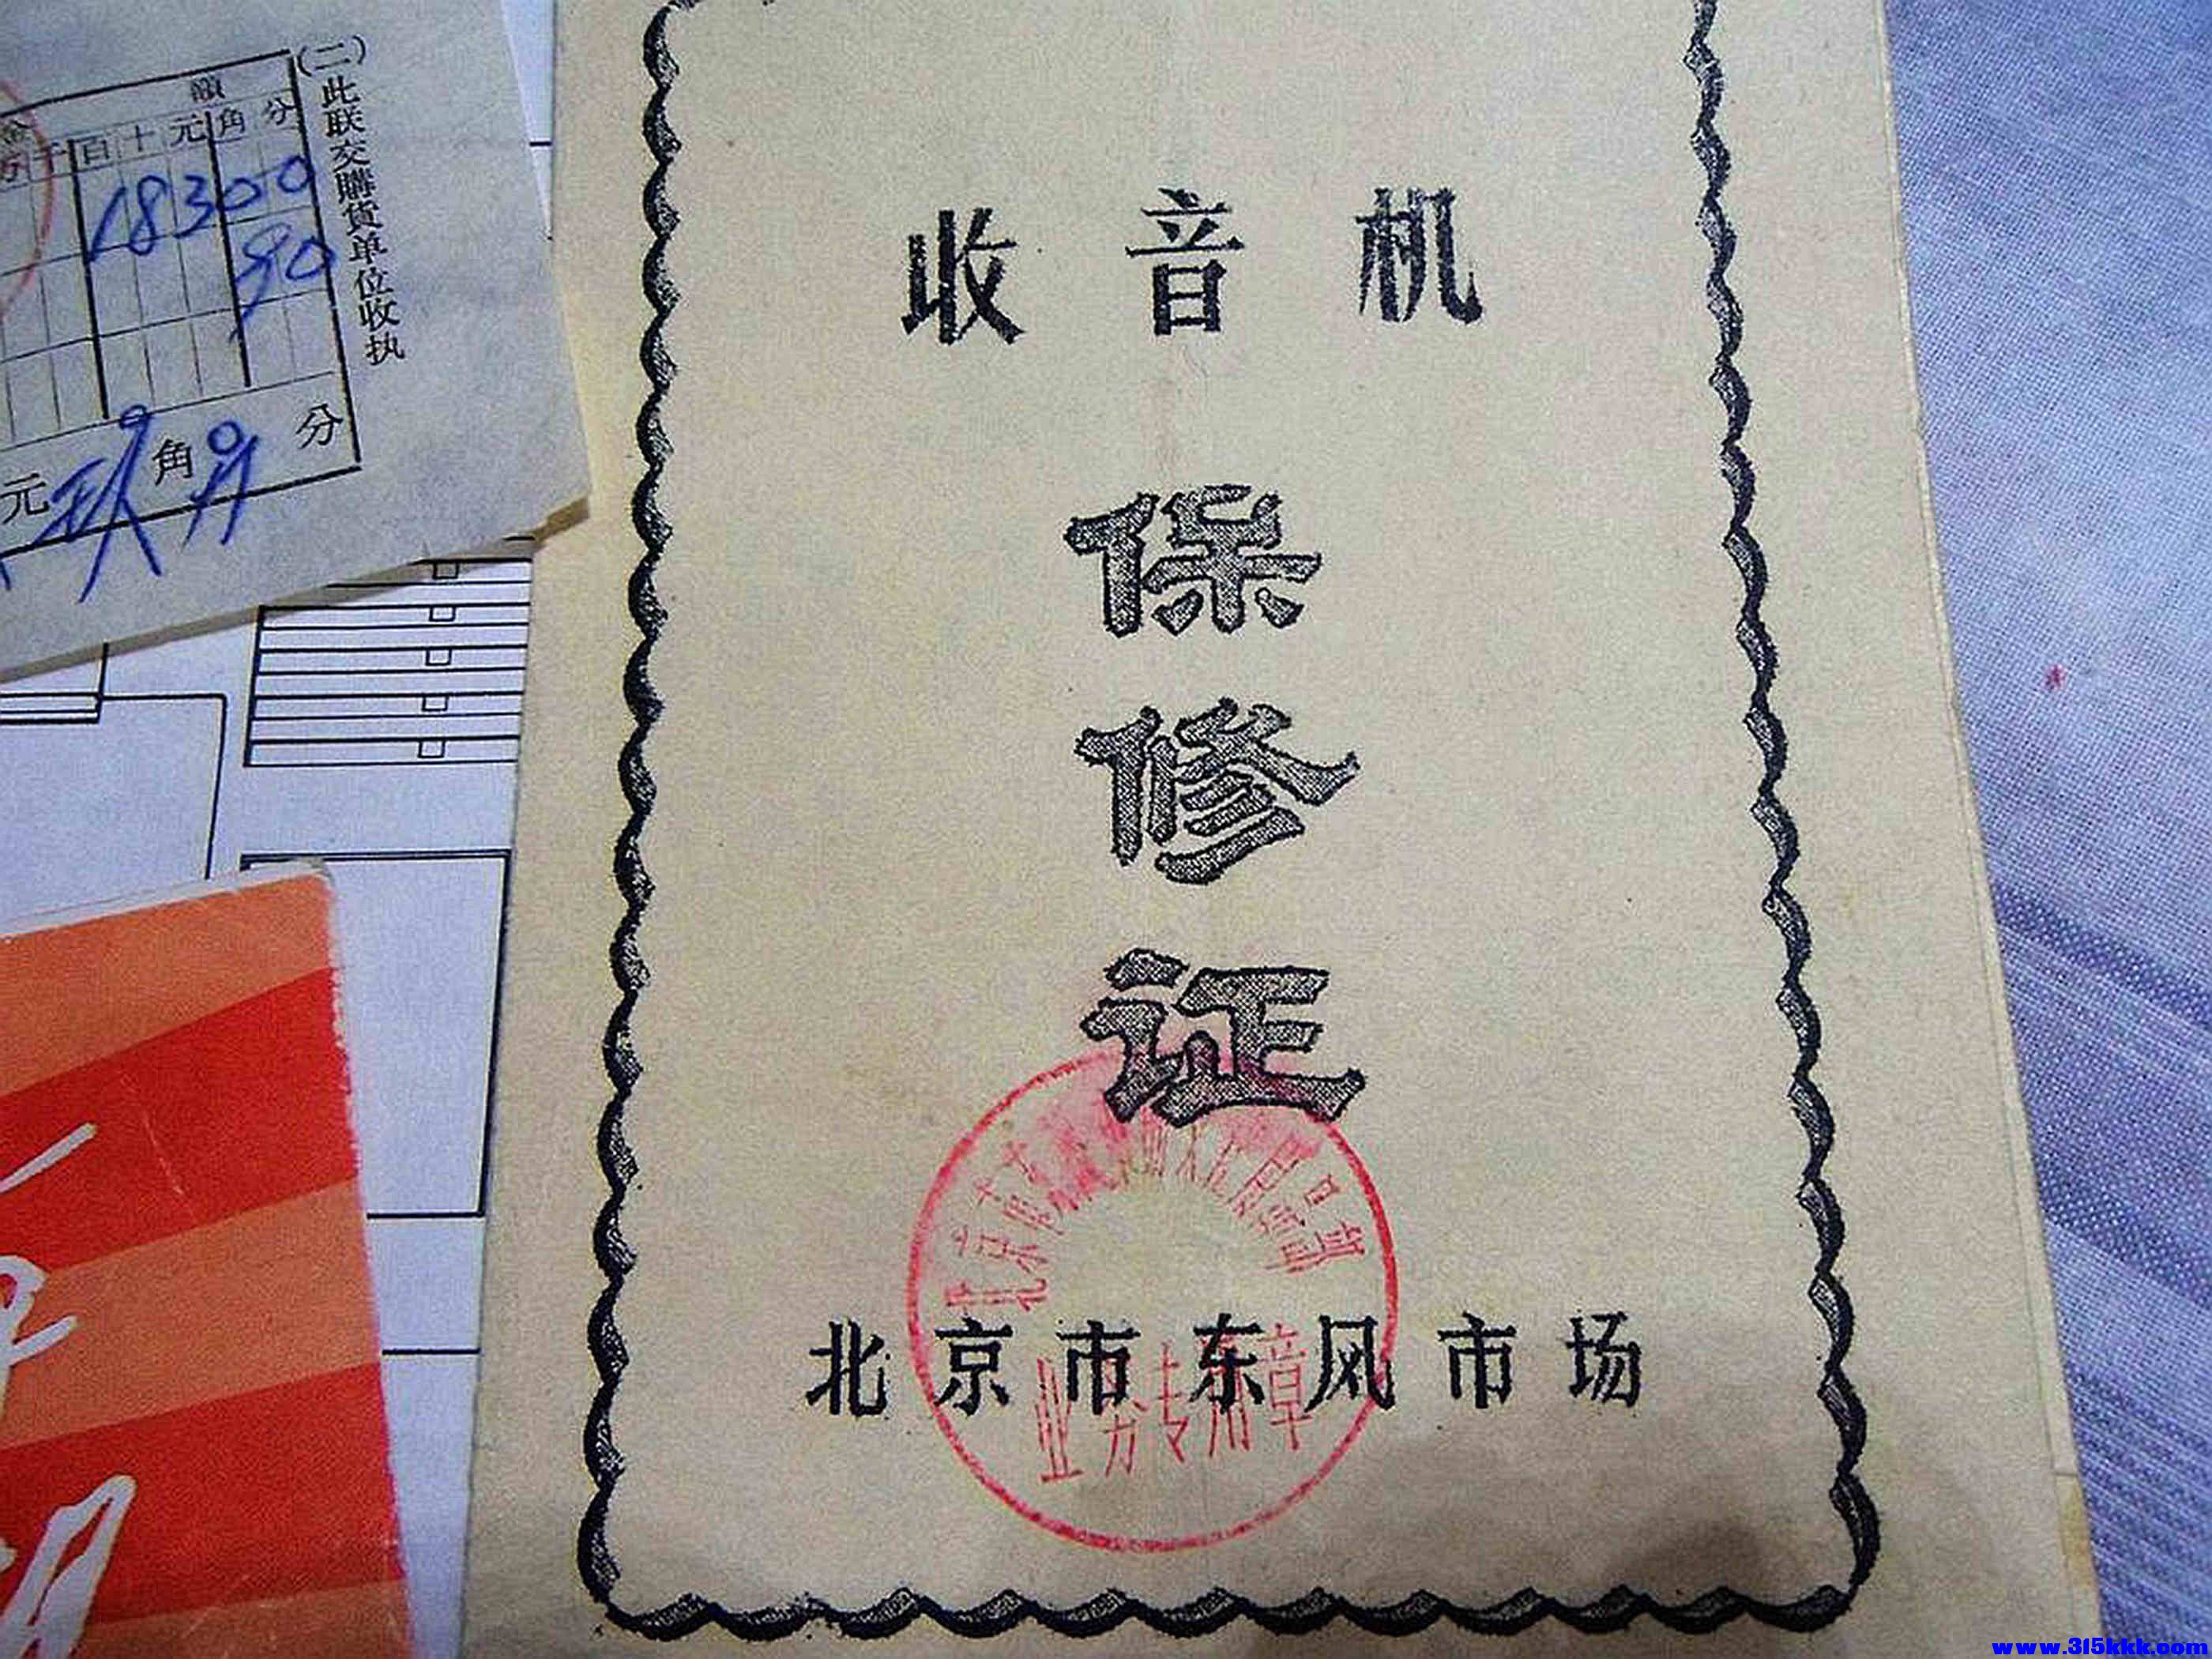 (二)此联交購貨单位收执
金
額
万千百十元角分
18300
90
元玖角另分
收音机
保
修
证
北京市东风市场
业务专用章
www.315kkk.com